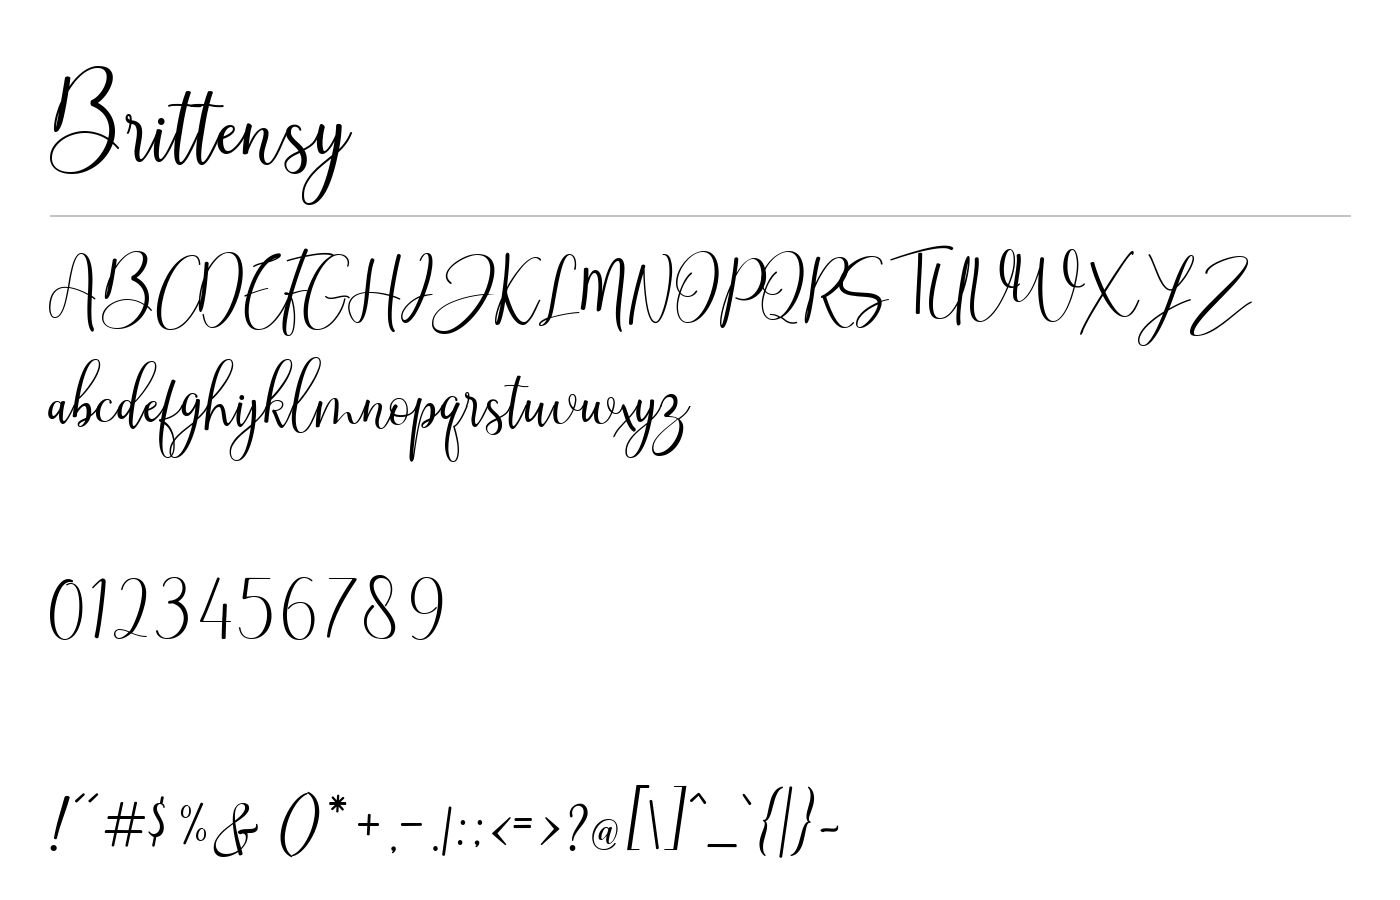 Brittensy
ABCDEFGHIJKLMNOPQRSTUVWXYZ
abcdefghijklmnopqrstuvwxyz
0123456789
!"#$%&()*+,-./:;<=>?@[\]^_`{|}~